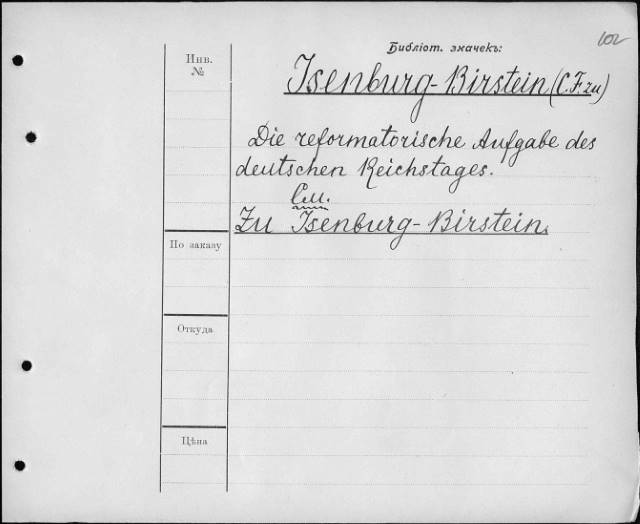 102
Библіот. значекъ:
Инв.
№
Isenburg-Birstein (C. F. zu)
Die reformatorische Aufgabe des
deutschen Reichstages.
См.
Zu Isenburg-Birstein.
По заказу
Откуда
Цѣна